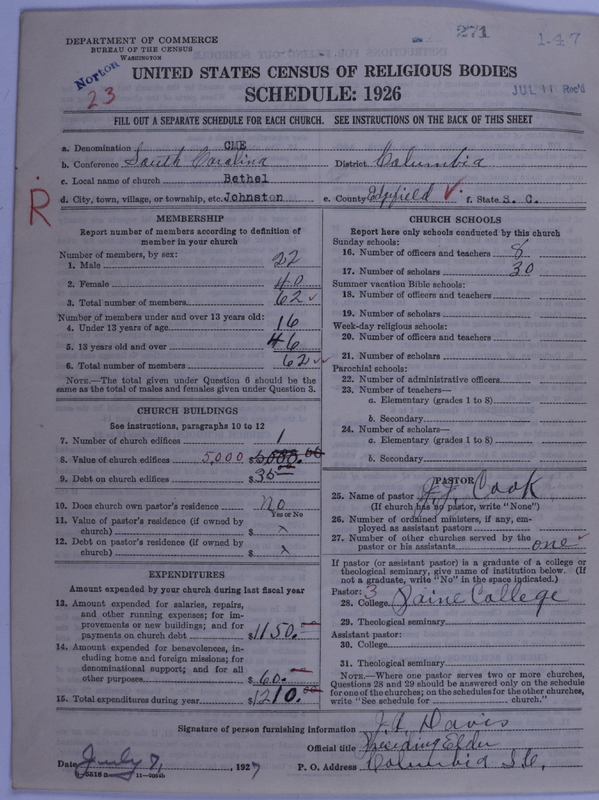 271
1-47
DEPARTMENT OF COMMERCE
BUREAU OF THE CENSUS
WASHINGTON
Norton
23
JUL 11 Rec'd
UNITED STATES CENSUS OF RELIGIOUS BODIES
SCHEDULE: 1926
FILL OUT A SEPARATE SCHEDULE FOR EACH CHURCH. SEE INSTRUCTIONS ON THE BACK OF THIS SHEET
a. Denomination CME
b. Conference South Carolina District Columbia
c. Local name of church Bethel
d. City, town, village, or township, etc. Johnston e. County Edgfield ✓ f. State S. C.
R
MEMBERSHIP
Report number of members according to definition of
member in your church
Number of members, by sex:
1. Male 22
2. Female 40
3. Total number of members 62 ✓
Number of members under and over 13 years old:
4. Under 13 years of age 16
5. 13 years old and over 46
6. Total number of members 62 ✓
NOTE.—The total given under Question 6 should be the
same as the total of males and females given under Question 3.
CHURCH BUILDINGS
See instructions, paragraphs 10 to 12
7. Number of church edifices 1
8. Value of church edifices 5,000 $
9. Debt on church edifices $35.00
10. Does church own pastor's residence No
Yes or No
11. Value of pastor's residence (if owned by
church) $ x
12. Debt on pastor's residence (if owned by
church) $ x
EXPENDITURES
Amount expended by your church during last fiscal year
13. Amount expended for salaries, repairs,
and other running expenses; for im-
provements or new buildings; and for
payments on church debt $1150.
14. Amount expended for benevolences, in-
cluding home and foreign missions; for
denominational support; and for all
other purposes $60.
15. Total expenditures during year $1210.00
CHURCH SCHOOLS
Report here only schools conducted by this church
Sunday schools:
16. Number of officers and teachers 8
17. Number of scholars 30
Summer vacation Bible schools:
18. Number of officers and teachers
19. Number of scholars
Week-day religious schools:
20. Number of officers and teachers
21. Number of scholars
Parochial schools:
22. Number of administrative officers
23. Number of teachers—
a. Elementary (grades 1 to 8)
b. Secondary
24. Number of scholars—
a. Elementary (grades 1 to 8)
b. Secondary
PASTOR
25. Name of pastor J. J. Cook
(If church has no pastor, write "None")
26. Number of ordained ministers, if any, em-
ployed as assistant pastors
27. Number of other churches served by the
pastor or his assistants one ✓
If pastor (or assistant pastor) is a graduate of a college or
theological seminary, give name of institution below. (If
not a graduate, write "No" in the space indicated.)
Pastor: 3
28. College Paine College
29. Theological seminary
Assistant pastor:
30. College
31. Theological seminary
NOTE.—Where one pastor serves two or more churches,
Questions 28 and 29 should be answered only on the schedule
for one of the churches; on the schedules for the other churches,
write "See schedule for church."
Signature of person furnishing information J. A. Davis
Official title Presiding Elder
Date July 7, , 1927 P. O. Address Columbia S.C.